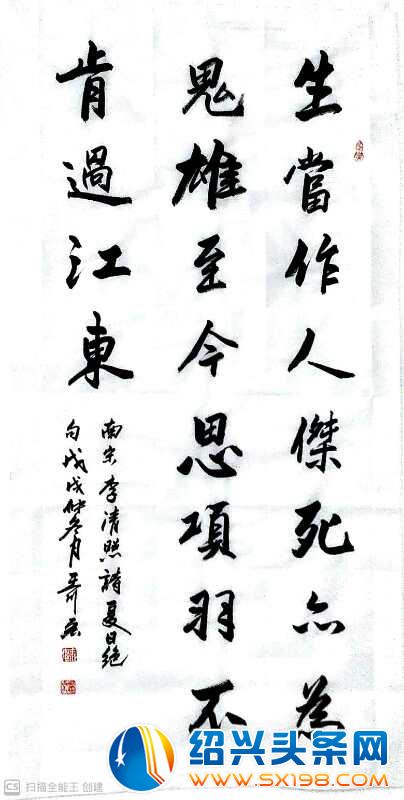 生當作人傑死亦為
鬼雄至今思項羽不
肯過江東
南宋李清照詩夏日绝
句戊戌仲冬月
CS 扫描全能王 创建
绍兴头条网
WWW.SX198.COM